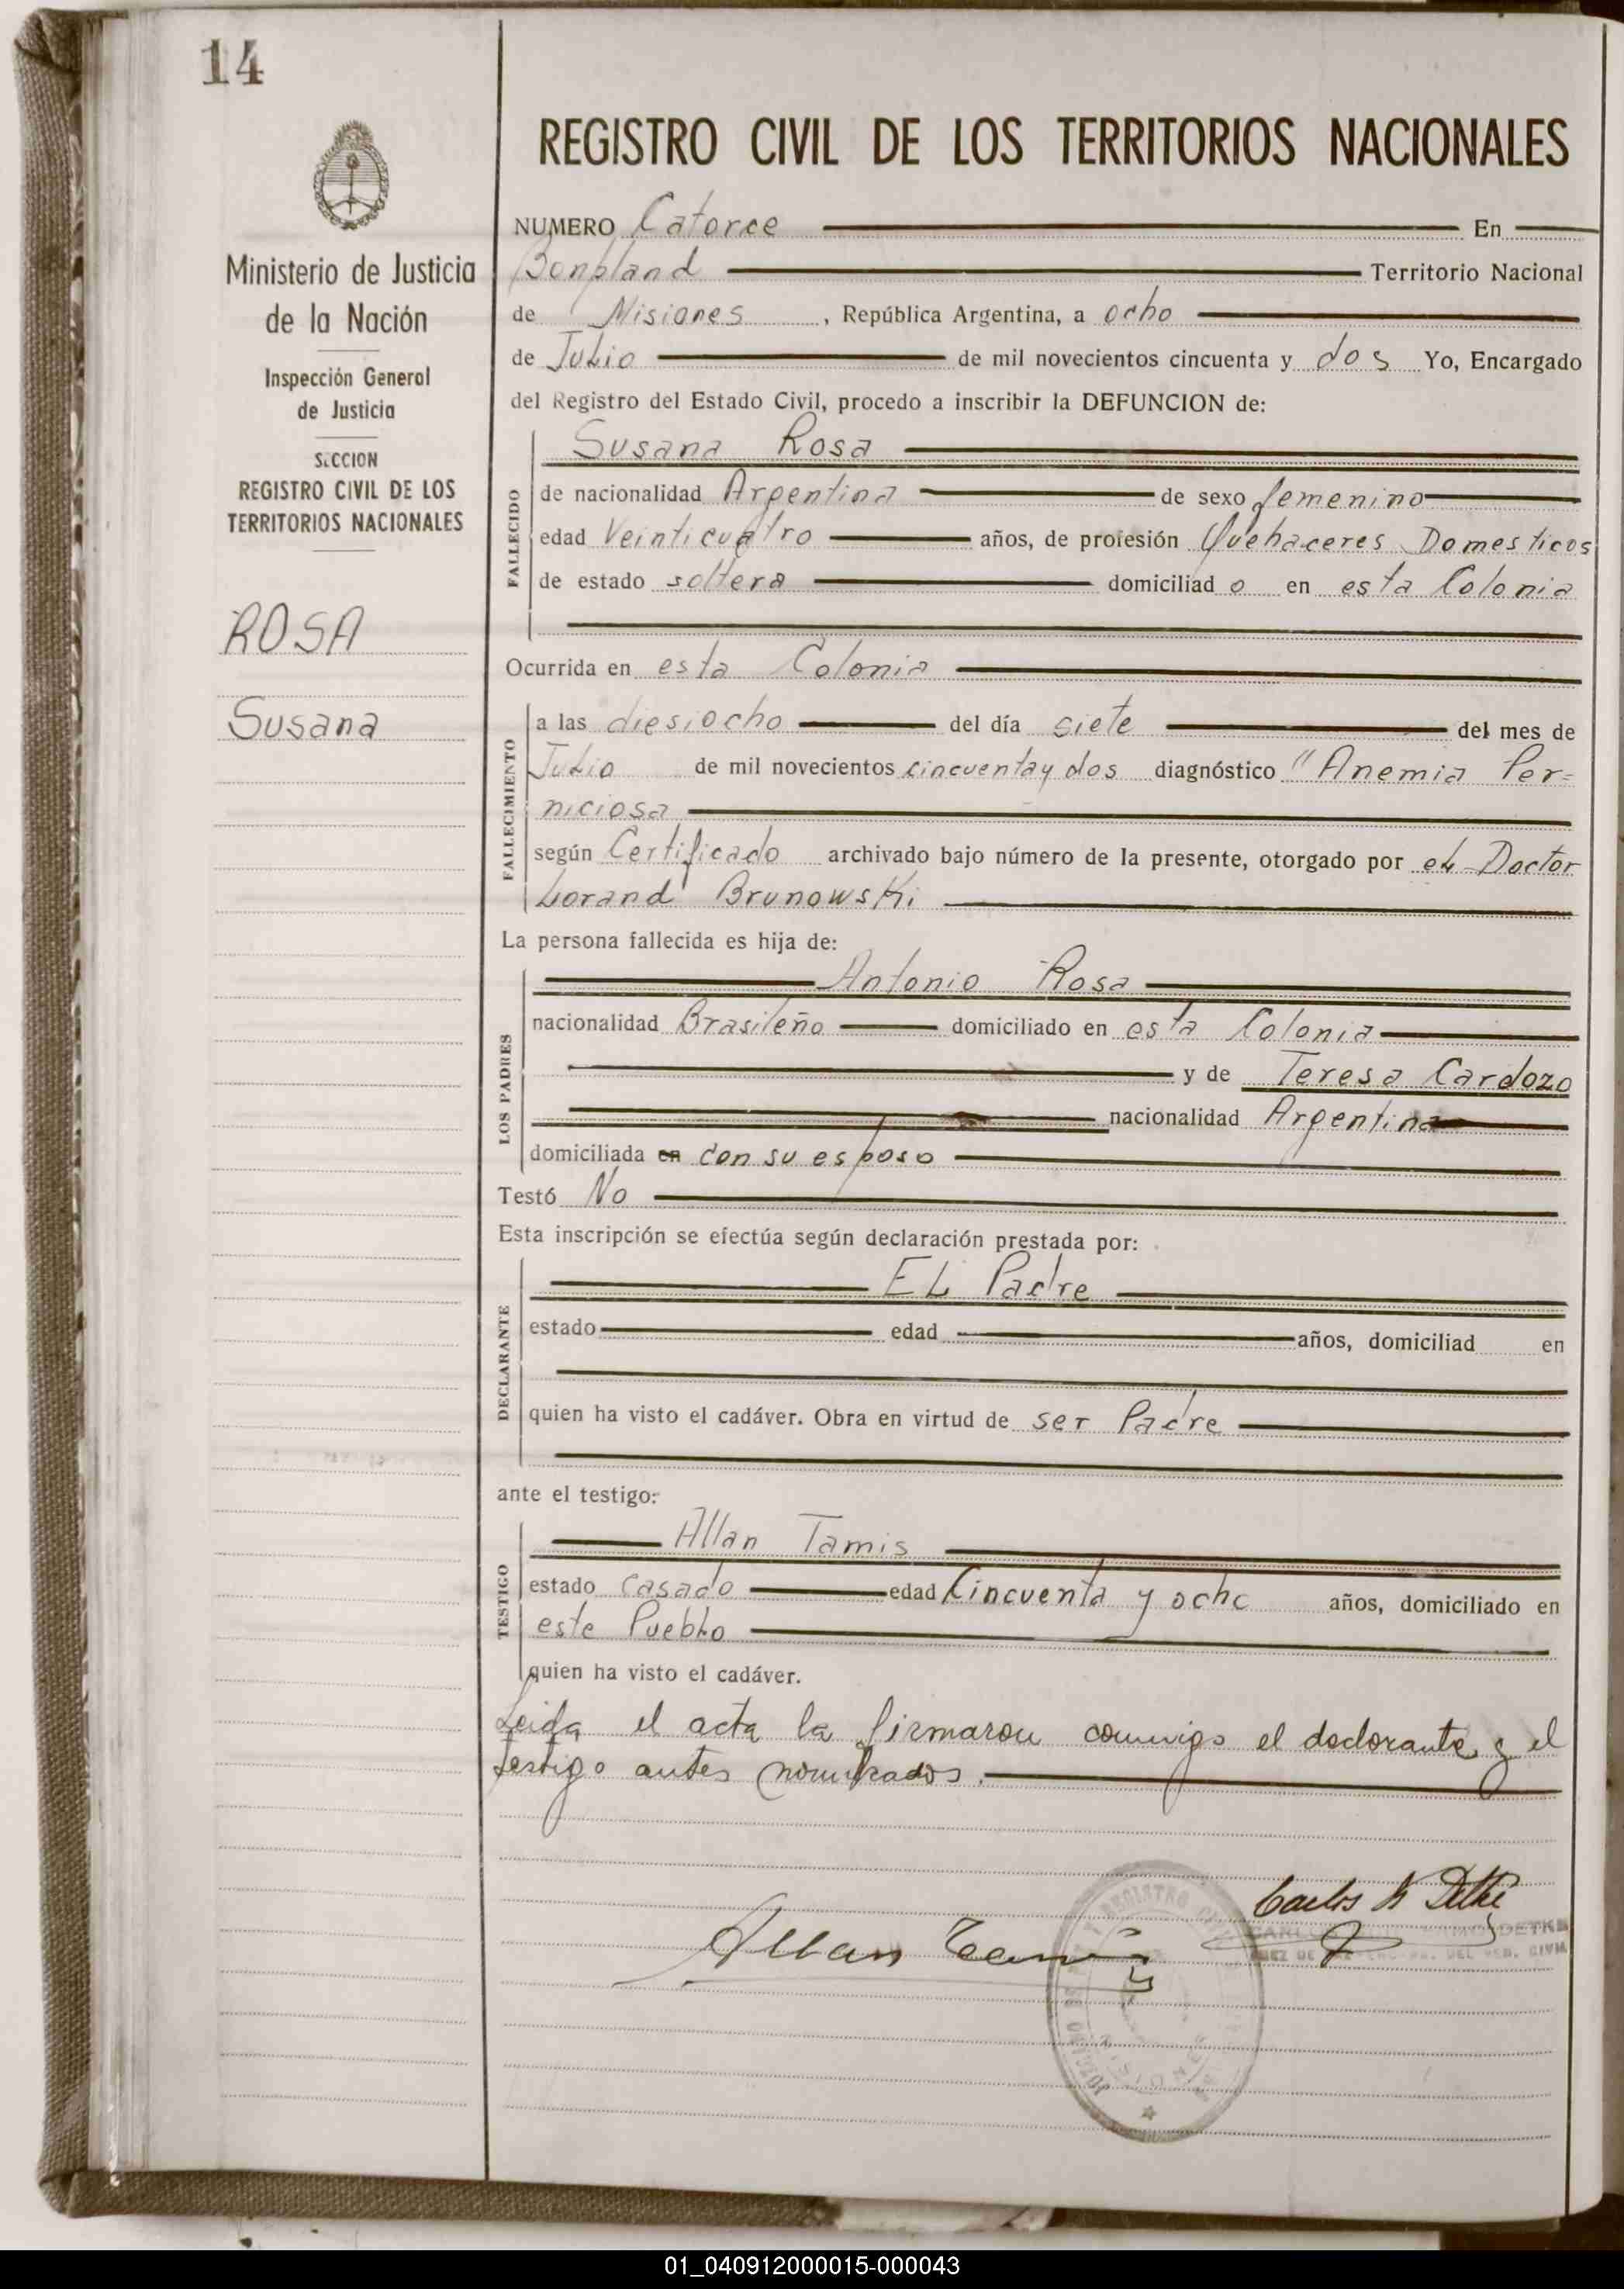 14
Ministerio de Justicia
de la Nación
Inspección General
de Justicia
SECCION
REGISTRO CIVIL DE LOS
TERRITORIOS NACIONALES
ROSA
Susana
REGISTRO CIVIL DE LOS TERRITORIOS NACIONALES
NUMERO Catorce En
Bonpland Territorio Nacional
de Misiones, República Argentina, a ocho
de Julio de mil novecientos cincuenta y dos Yo, Encargado
del Registro del Estado Civil, procedo a inscribir la DEFUNCION de:
FALLECIDO
Susana Rosa
de nacionalidad Argentina de sexo femenino
edad Veinticuatro años, de profesión Quehaceres Domesticos
de estado soltera domiciliad o en esta Colonia
Ocurrida en esta Colonia
FALLECIMIENTO
a las diesiocho del día siete del mes de
Julio de mil novecientos cincuenta y dos diagnóstico "Anemia Per=
niciosa
según Certificado archivado bajo número de la presente, otorgado por el Doctor
Lorand Brunowski
La persona fallecida es hija de:
LOS PADRES
Antonio Rosa
nacionalidad Brasileño domiciliado en esta Colonia
y de Teresa Cardozo
nacionalidad Argentina
domiciliada en con su esposo
Testó No
Esta inscripción se efectúa según declaración prestada por:
DECLARANTE
EL Padre
estado edad años, domiciliad en
quien ha visto el cadáver. Obra en virtud de ser Padre
ante el testigo:
TESTIGO
Allan Tamis
estado casado edad Cincuenta y ocho años, domiciliado en
este Pueblo
quien ha visto el cadáver.
Leida el acta la firmaron conmigo el declarante y el
testigo antes nombrados.
Carlos
Allan
01_040912000015-000043